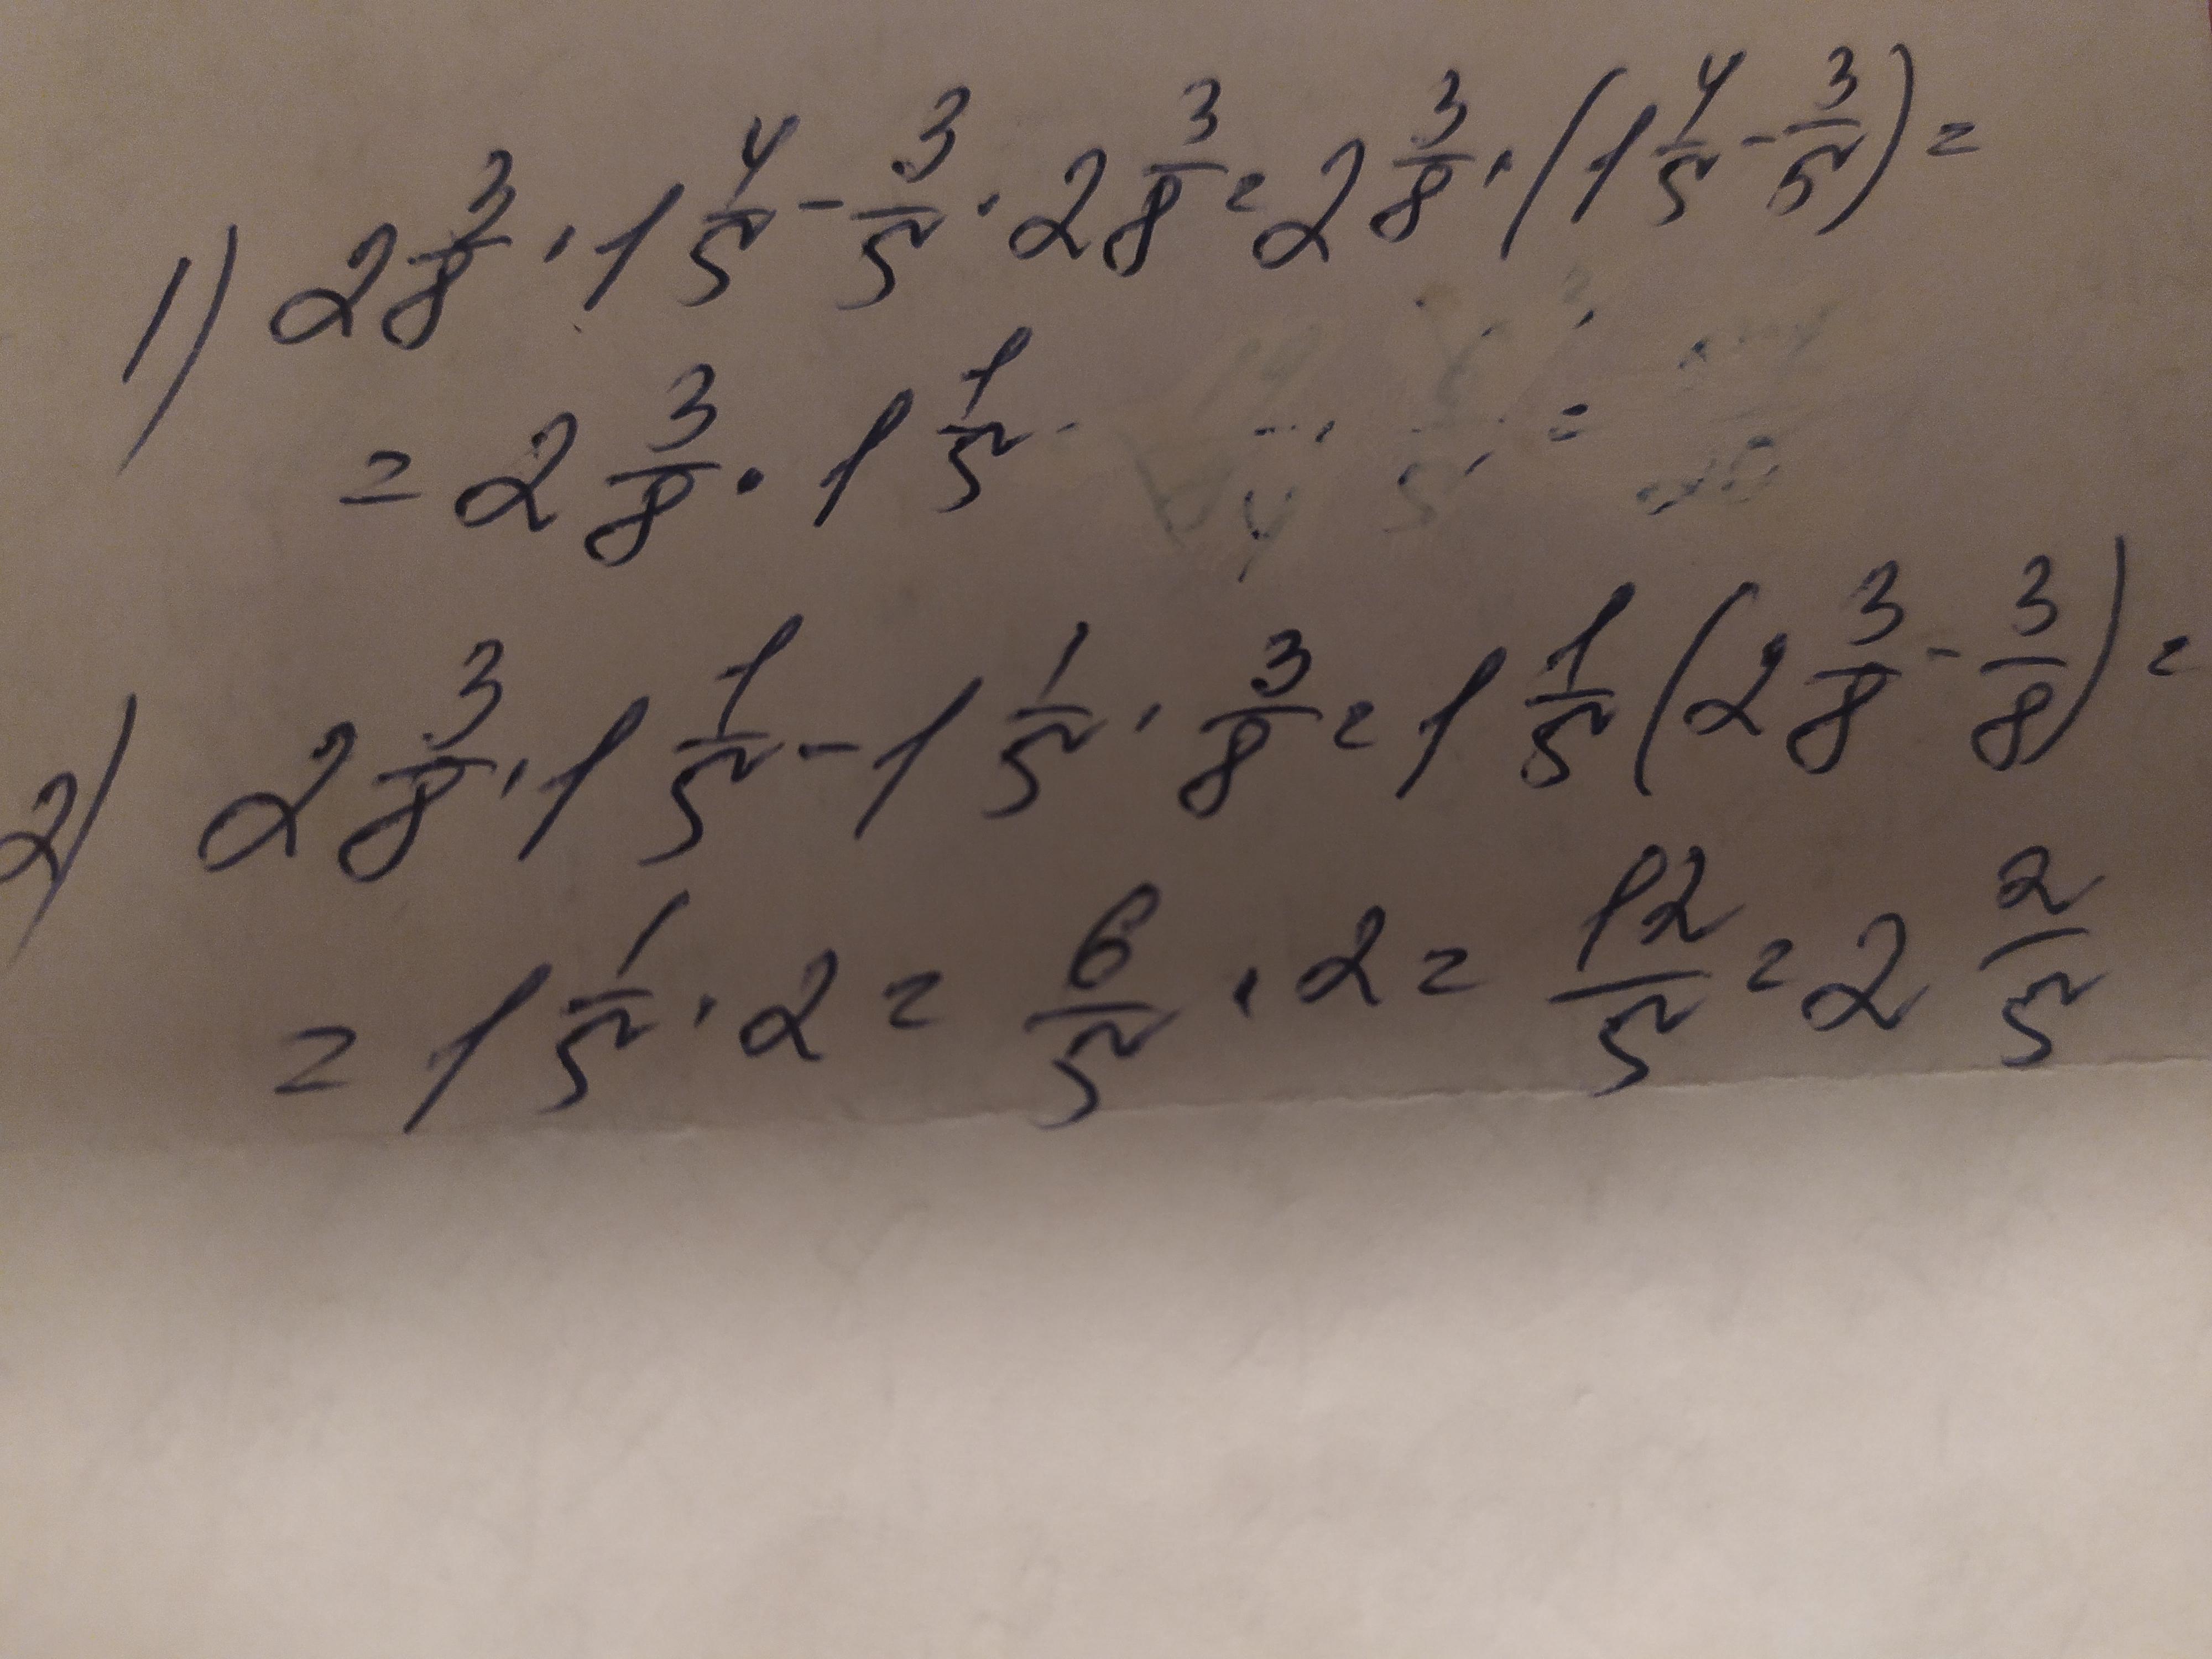 1) 2 3/8 · 1 4/5 - 3/5 · 2 3/8 = 2 3/8 · (1 4/5 - 3/5) =
= 2 3/8 · 1 1/5
2) 2 3/8 · 1 1/5 - 1 1/5 · 3/8 = 1 1/5 (2 3/8 - 3/8) =
= 1 1/5 · 2 = 6/5 · 2 = 12/5 = 2 2/5